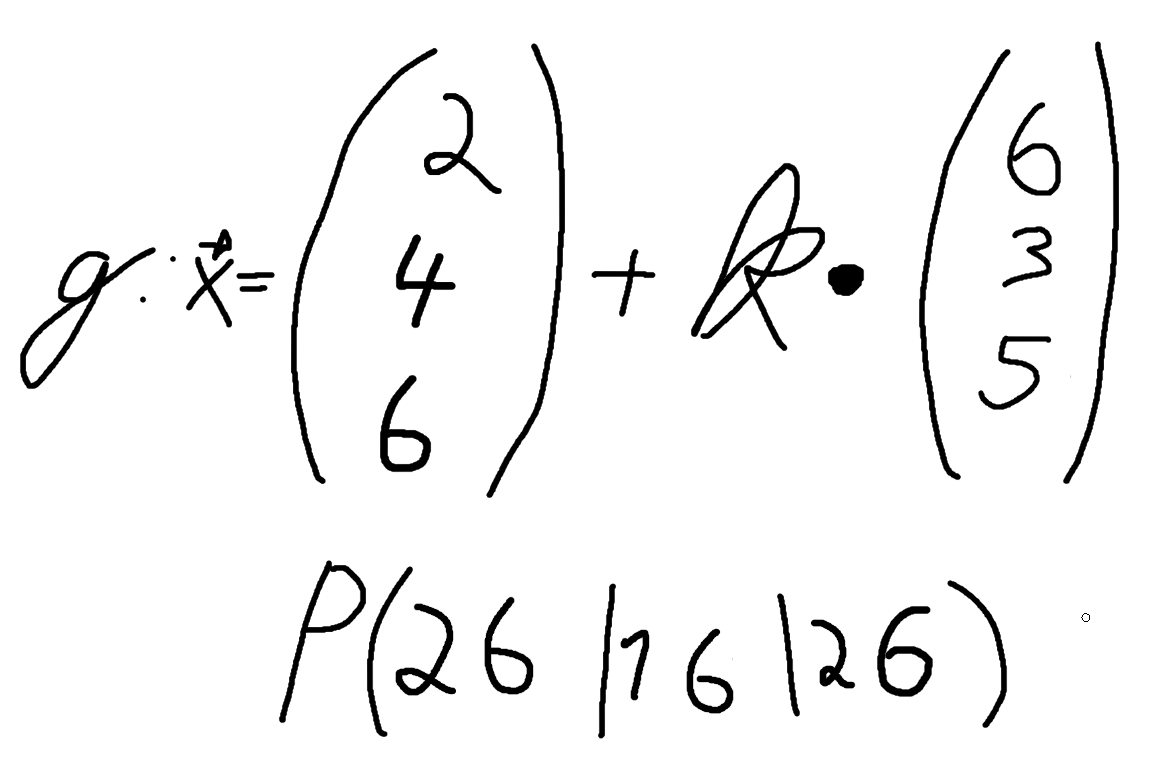 g: x⃗ = (2 4 6) + k • (6 3 5)
P(26 | 16 | 26)